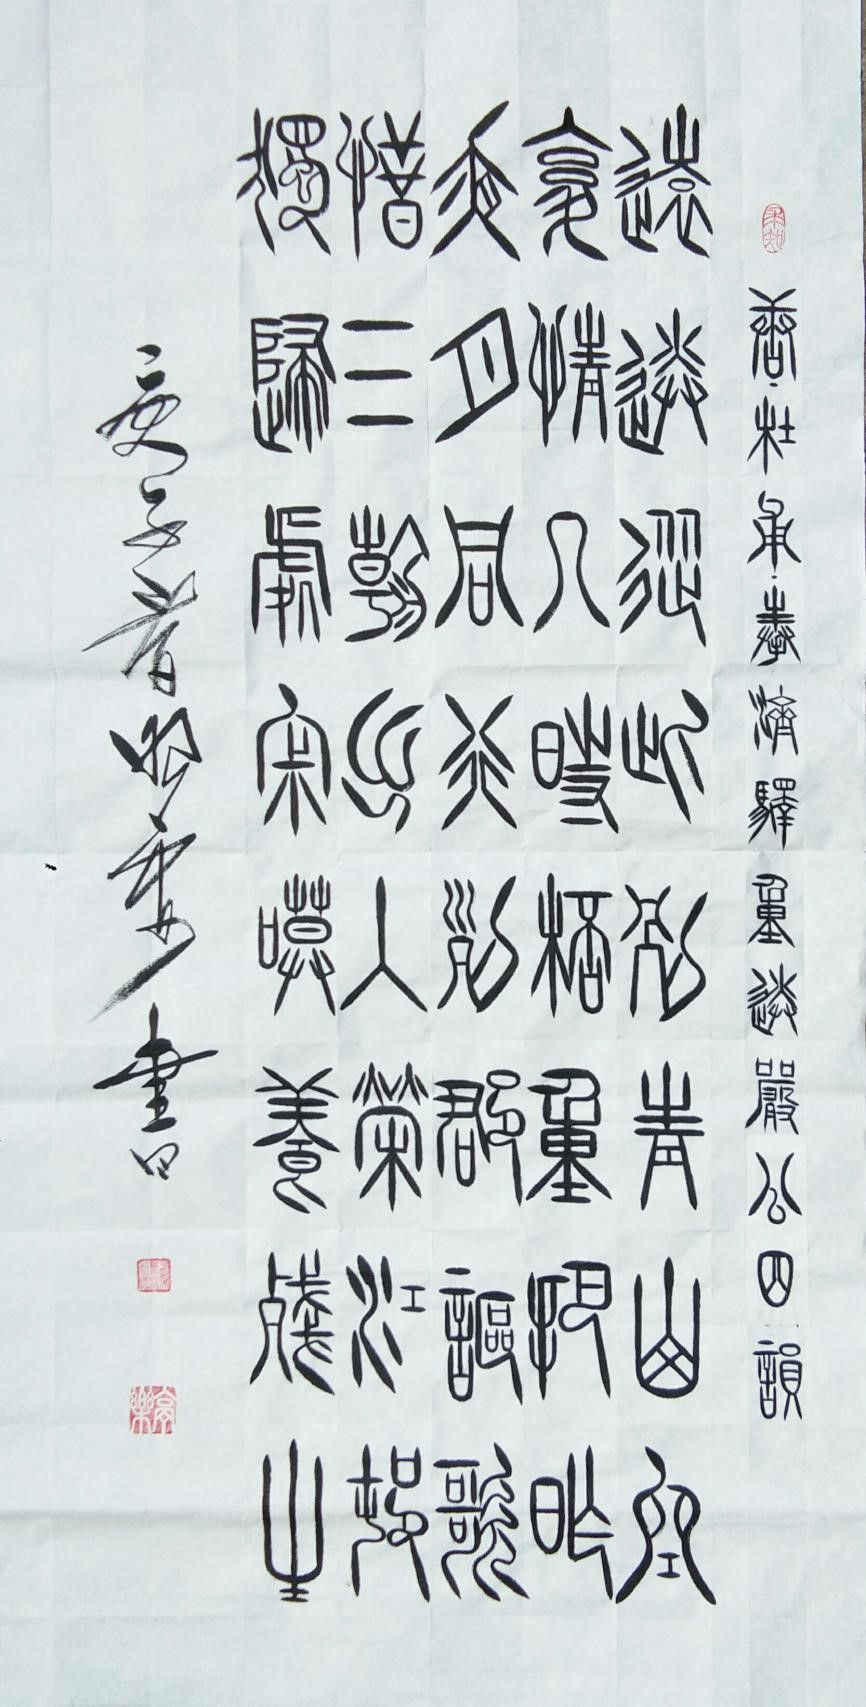 唐杜甫奉濟驛重送嚴公四韻
遠送從此別青山空
复情几時桮重把昨
夜月同行列郡謳歌
惜三朝出入榮江邨
獨歸處寂嗼養殘生
庚子春 書